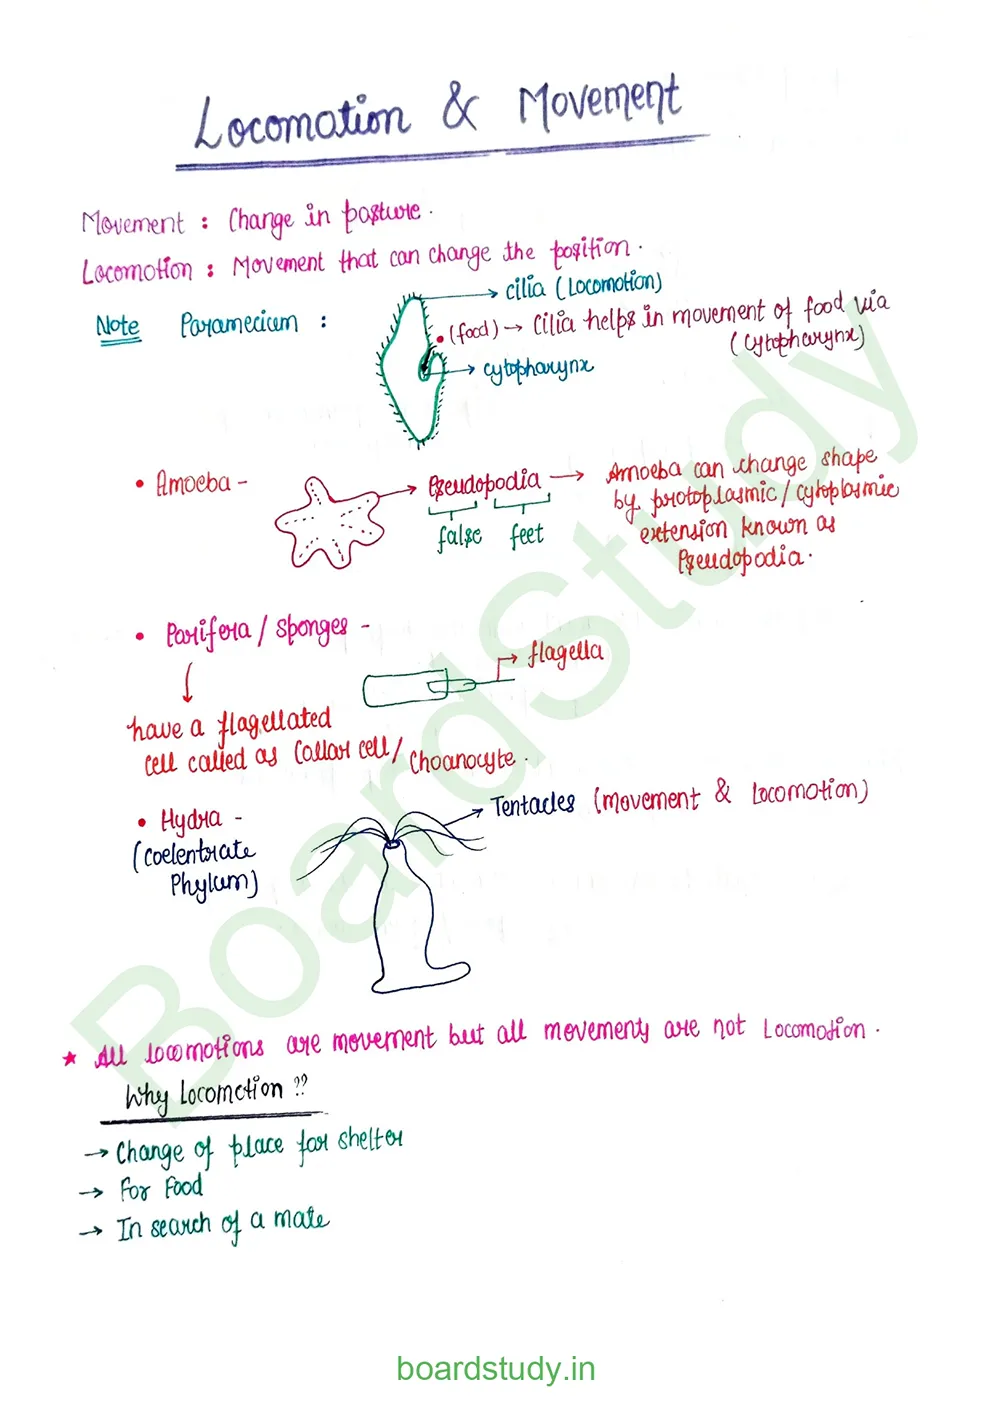 Locomation & Movement
Movement : Change in pasture.
Locomotion : Movement that can change the position.
Note Paramecium :
cilia (Locomotion)
(food) → Cilia helps in movement of food via
(Cytopharynx)
→ cytopharynx
• Amoeba -
Pseudopodia →
false feet
Amoeba can change shape
by protoplasmic/cytoplasmic
extension known as
Pseudopodia.
• Porifera / Sponges -
flagella
have a flagellated
cell called as Collar cell/ Choanocyte.
• Hydra -
(Coelentrate
Phylum)
Tentacles (movement & Locomotion)
★ All locomotions are movement but all movements are not Locomotion.
Why Locomotion ??
→ Change of place for shelter
→ For Food
→ In search of a mate
BoardStudy
boardstudy.in